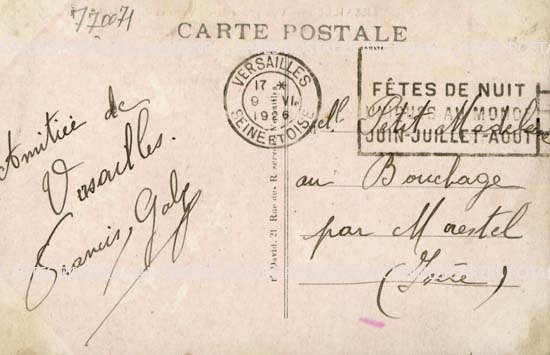 770071
CARTE POSTALE
VERSAILLES
17 *
9 VI
1936
SEINE ET OISE
FÊTES DE NUIT
JUIN-JUILLET-AOUT
Amitiée de
Versailles.
Francis, Galy
Mell. Petit Madeleine
au Bouchage
par Morestel
(Isère)
P. David, 21, Rue des Réservoirs, Versailles